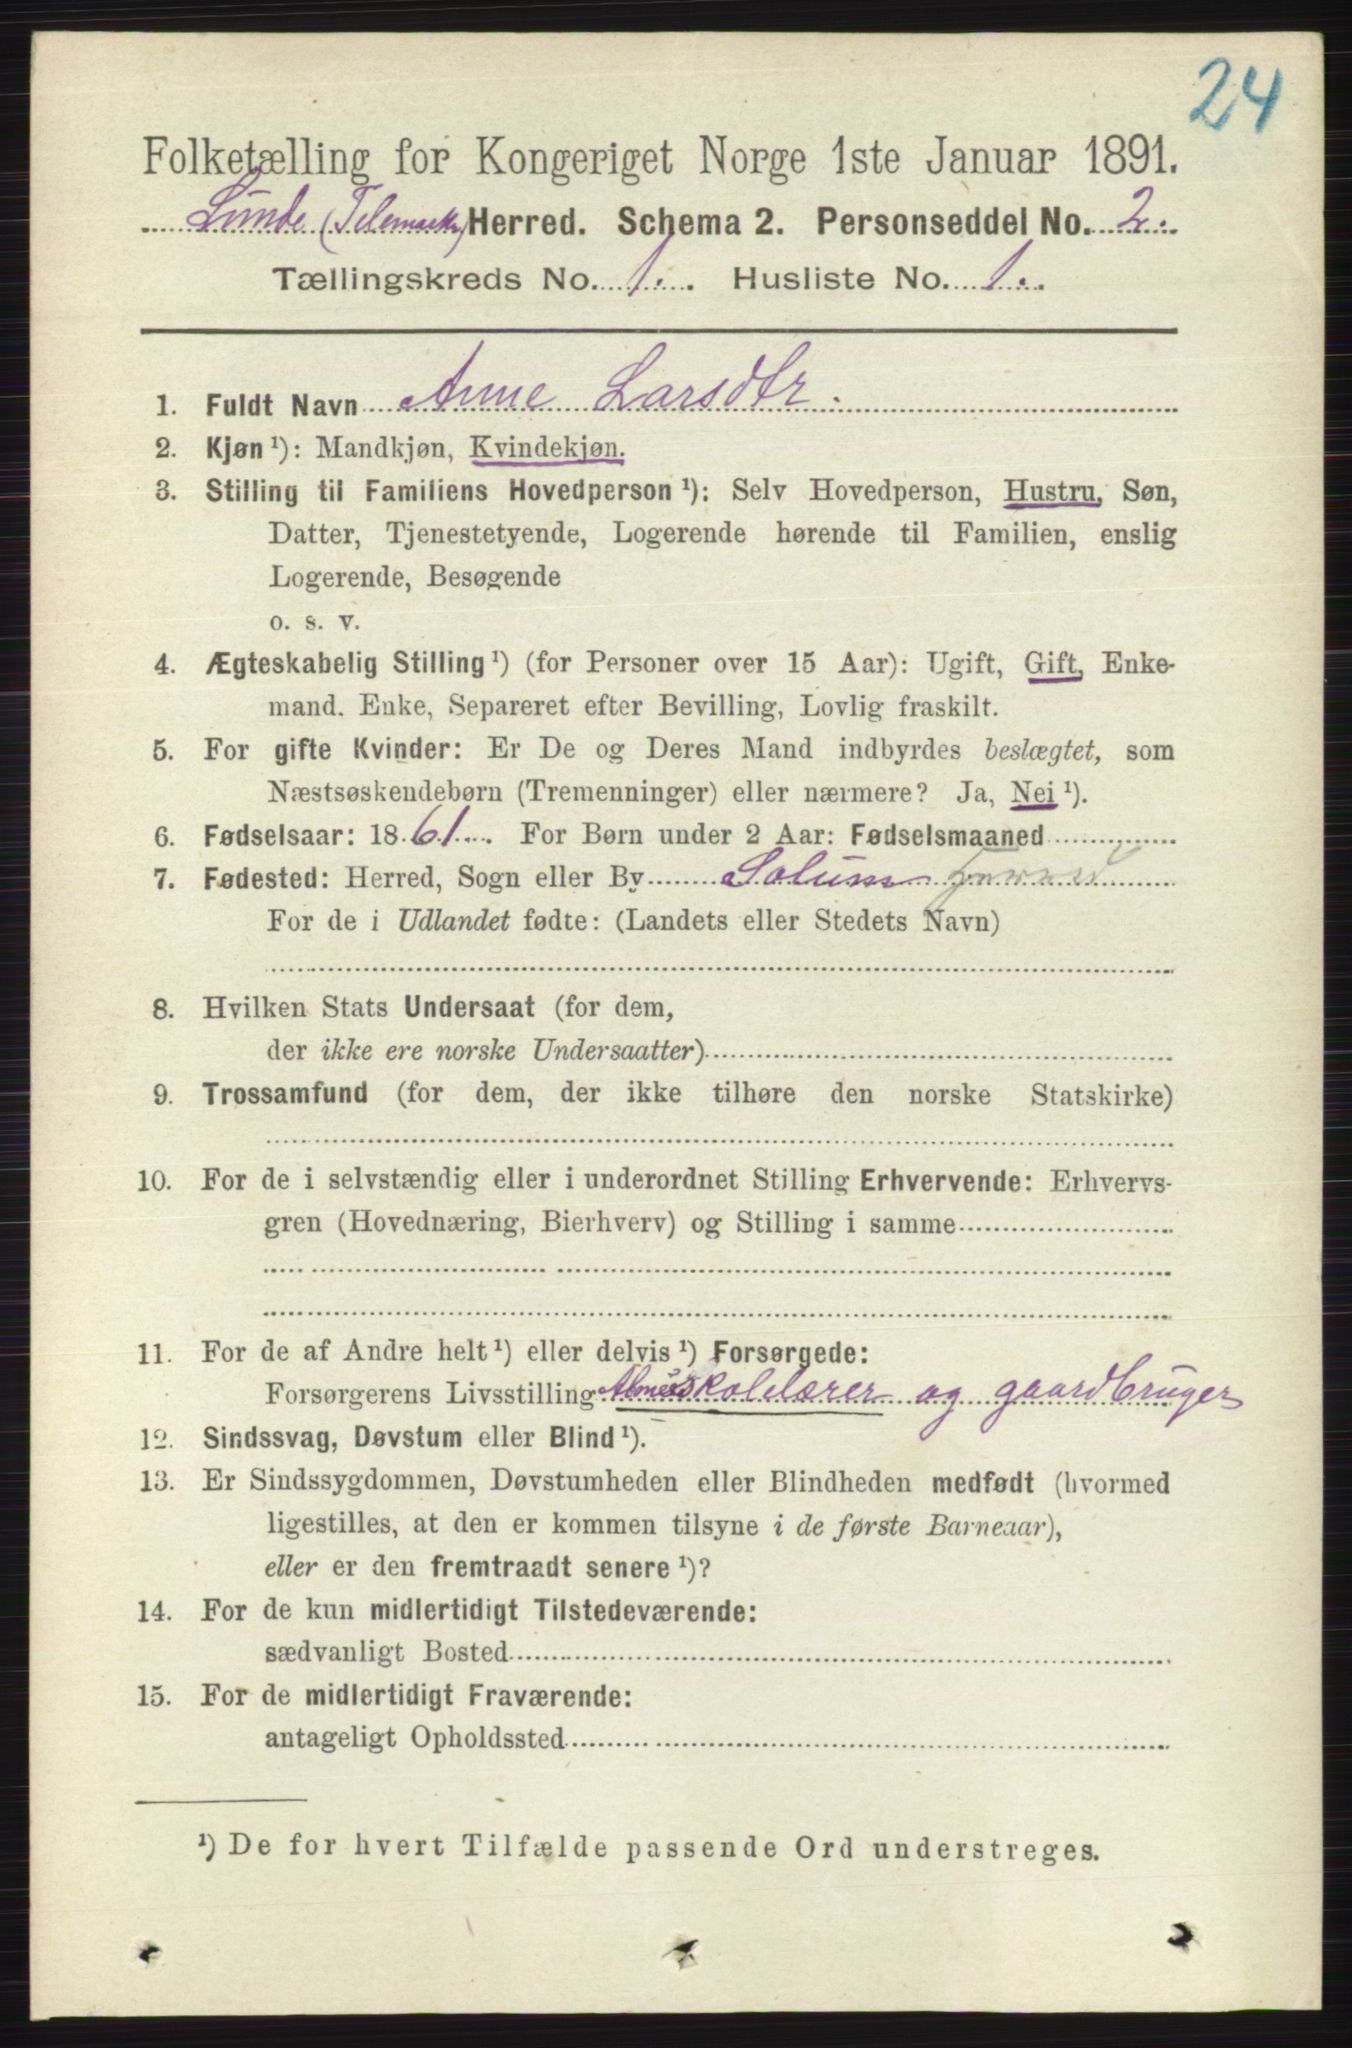 24
Folketælling for Kongeriget Norge 1ste Januar 1891.
Lunde (Telemark) Herred. Schema 2. Personseddel No. 2.
Tællingskreds No. 1. Husliste No. 1.
1. Fuldt Navn Anne Larsdtr.
2. Kjøn ¹): Mandkjøn, Kvindekjøn.
3. Stilling til Familiens Hovedperson ¹): Selv Hovedperson, Hustru, Søn,
Datter, Tjenestetyende, Logerende hørende til Familien, enslig
Logerende, Besøgende
o. s. v.
4. Ægteskabelig Stilling ¹) (for Personer over 15 Aar): Ugift, Gift, Enke-
mand. Enke, Separeret efter Bevilling, Lovlig fraskilt.
5. For gifte Kvinder: Er De og Deres Mand indbyrdes beslægtet, som
Næstsøskendebørn (Tremenninger) eller nærmere? Ja, Nei ¹).
6. Fødselsaar: 1861. For Børn under 2 Aar: Fødselsmaaned
7. Fødested: Herred, Sogn eller By Solum Herred
For de i Udlandet fødte: (Landets eller Stedets Navn)
8. Hvilken Stats Undersaat (for dem,
der ikke ere norske Undersaatter)
9. Trossamfund (for dem, der ikke tilhøre den norske Statskirke)
10. For de i selvstændig eller i underordnet Stilling Erhvervende: Erhvervs-
gren (Hovednæring, Bierhverv) og Stilling i samme
11. For de af Andre helt ¹) eller delvis ¹) Forsørgede:
Forsørgerens Livsstilling skolelærer og gaardbruger
12. Sindssvag, Døvstum eller Blind ¹).
13. Er Sindssygdommen, Døvstumheden eller Blindheden medfødt (hvormed
ligestilles, at den er kommen tilsyne i de første Barneaar),
eller er den fremtraadt senere ¹)?
14. For de kun midlertidigt Tilstedeværende:
sædvanligt Bosted
15. For de midlertidigt Fraværende:
antageligt Opholdssted
¹) De for hvert Tilfælde passende Ord understreges.